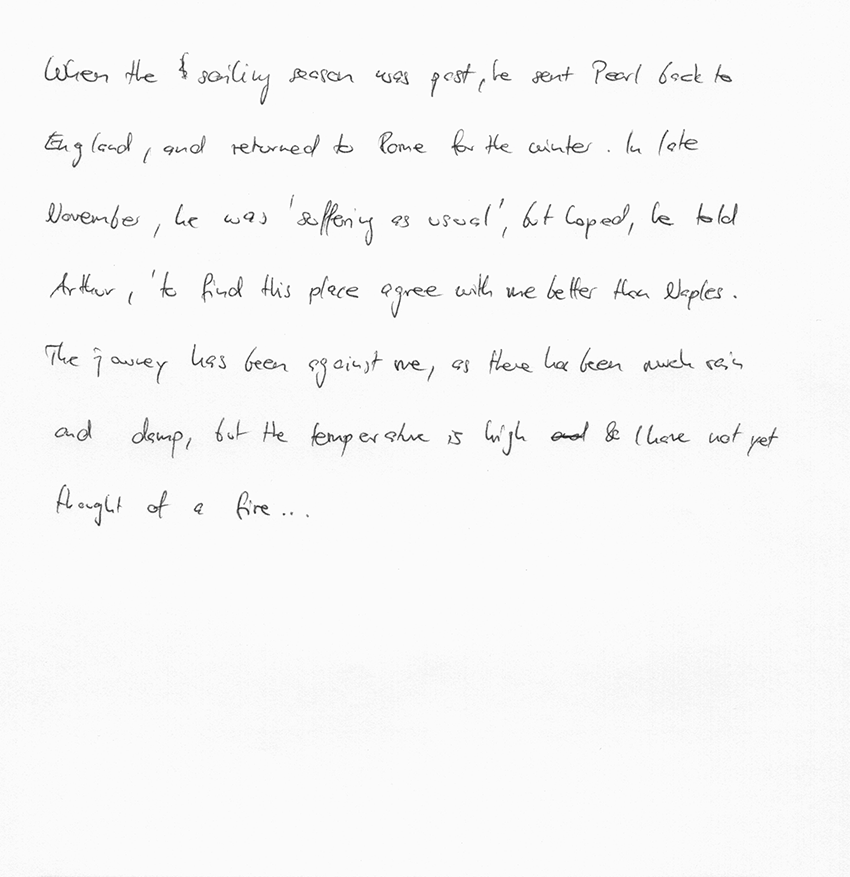 When the sailing season was past, he sent Pearl back to
England, and returned to Rome for the winter. In late
November, he was 'suffering as usual', but hoped, he told
Arthur, 'to find this place agree with me better than Naples.
The has been against me, as there has been much rain
and damp, but the temperature is high & I have not yet
thought of a fire...